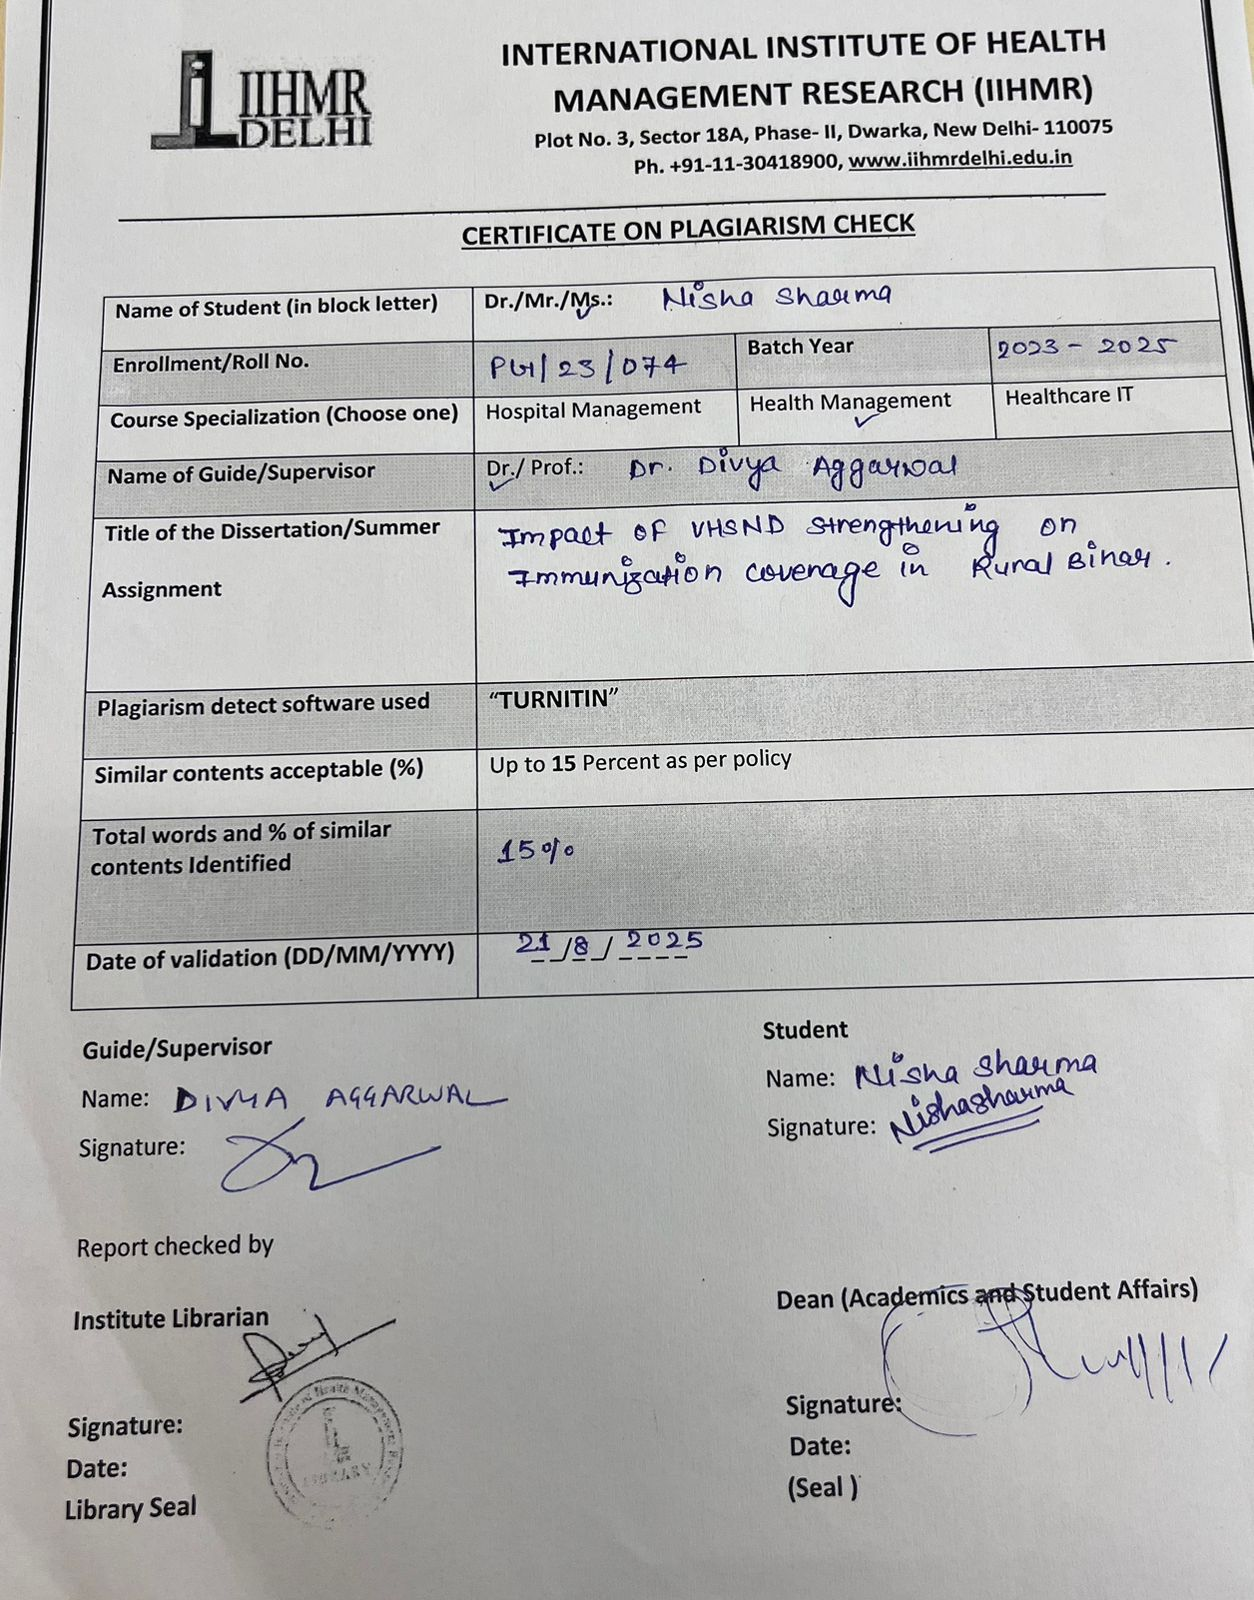 IIHMR
DELHI
INTERNATIONAL INSTITUTE OF HEALTH
MANAGEMENT RESEARCH (IIHMR)
Plot No. 3, Sector 18A, Phase- II, Dwarka, New Delhi- 110075
Ph. +91-11-30418900, www.iihmrdelhi.edu.in
CERTIFICATE ON PLAGIARISM CHECK
Name of Student (in block letter) Dr./Mr./Ms.: Nisha Sharma
Enrollment/Roll No. PG/23/074 Batch Year 2023 - 2025
Course Specialization (Choose one) Hospital Management Health Management Healthcare IT
Name of Guide/Supervisor Dr./ Prof.: Dr. Divya Aggarwal
Title of the Dissertation/Summer Impact OF VHSND Strengthening on
Assignment Immunization coverage in Rural Bihar.
Plagiarism detect software used "TURNITIN"
Similar contents acceptable (%) Up to 15 Percent as per policy
Total words and % of similar
contents Identified 15%
Date of validation (DD/MM/YYYY) 21/8/2025
Guide/Supervisor
Name: DIVYA AGGARWAL
Signature:
Student
Name: Nisha Sharma
Signature: Nishasharma
Report checked by
Institute Librarian
Signature:
Date:
Library Seal
LIBRARY
Dean (Academics and Student Affairs)
Signature:
Date:
(Seal )